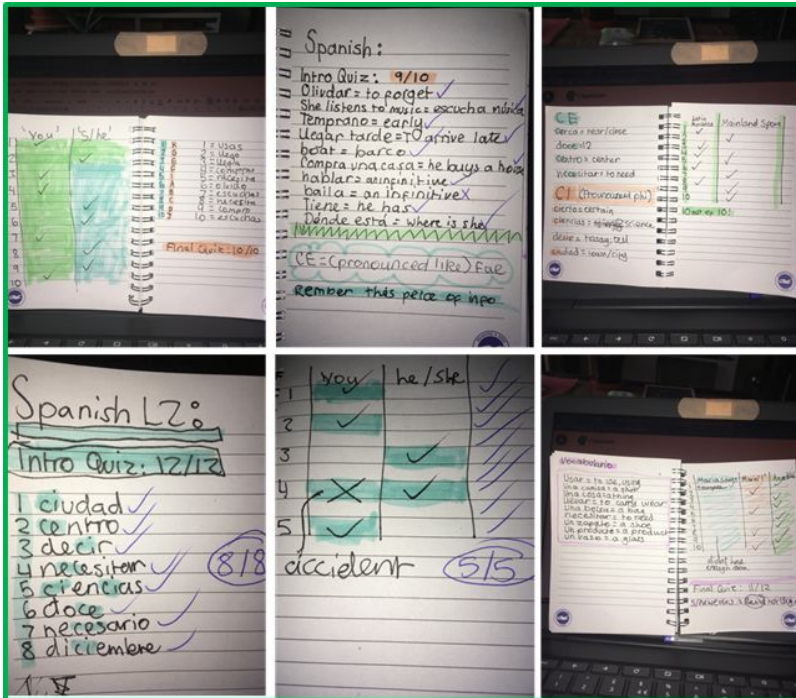 'you' 's/he'
1
2
3
4
5
6
7
8
9
10
1 = usas
2 = llega
3 = llegas
5 = necesita
6 = olvido
7 = escuchas
8 = necesita
9 = compro
10 = escuchas
Final Quiz: 10/10
Spanish:
Intro Quiz: 9/10
Olividar = to forget
She listens to music = escucha música
Temprano = early
Llegar tarde = To arrive late
boat = barco
Compra una casa = he buys a house
hablar = an infinitive
baila = an infinitive X
Tiene = he has
Dónde está = where is she
CE = (pronounced like) Fae
Rember this peice of info
CE
cerca = near/close
doce = 12
centro = center
necesitar = to need
CI (Pronounced phi)
cierto = certain
ciencias = science
decir = to say, tell
ciudad = town/city
Latin America
Mainland Spain
10 out of 10!
Spanish L2:
Intro Quiz: 12/12
1 ciudad
2 centro
3 decir
4 necesitar
5 ciencias
6 doce
7 necesario
8 diciembre
8/8
you he/she
1
2
3
4
5
accident
5/5
Vocabulario:
Usar = to use, using
Una camisa = a shirt
Una cosa = a thing
Llevar = to carry, wear
Una bolsa = a bag
necesitar = to need
Un zapato = a shoe
Un producto = a product
Un vaso = a glass
didnt have enough room
Final Quiz: 11/12